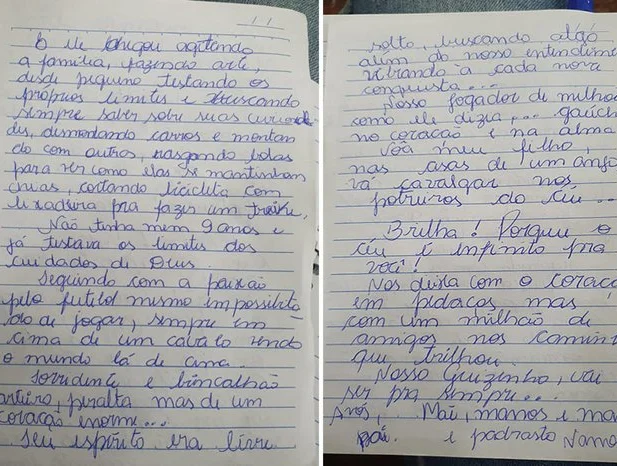 E ele chegou agitando
a família, fazendo arte,
desde pequeno testando os
próprios limites e buscando
sempre saber sobre suas curiosida
des, desmontando carros e montan
do com outros, rasgando bolas
para ver como elas se mantinham
cheias, cortando bicicleta com
lixadeira pra fazer um
Não tinha nem 9 anos e
já testava os limites dos
cuidados de Deus.
Seguindo com a paixão
pelo futebol mesmo impossibilita
do de jogar, sempre em
cima de um cavalo vendo
o mundo lá de cima.
Sorridente e brincalhão
arteiro, peralta mas de um
coração enorme...
Seu espírito era livre
solto, buscando algo
além do nosso entendime
vibrando a cada nova
conquista...
Nosso jogador de milhõe
como ele dizia,... gaúch
no coração e na alma
Voa meu filho,
nas asas de um anjo
vá cavalgar nos
potreiros do céu...
Brilha! Porque o
céu é infinito pra
você!
Nos deixa com o coraçã
em pedaços mas
com um milhão de
amigos nos caminh
que trilhou
Nosso Guizinho, vai
ser pra sempre...
Avós, Mãe, manos e ma
pai. e padrasto